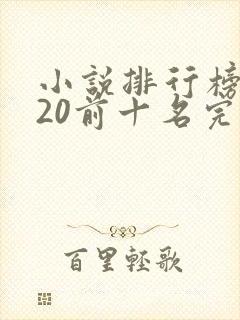 小說排行榜
20前十名完
百里輕歌